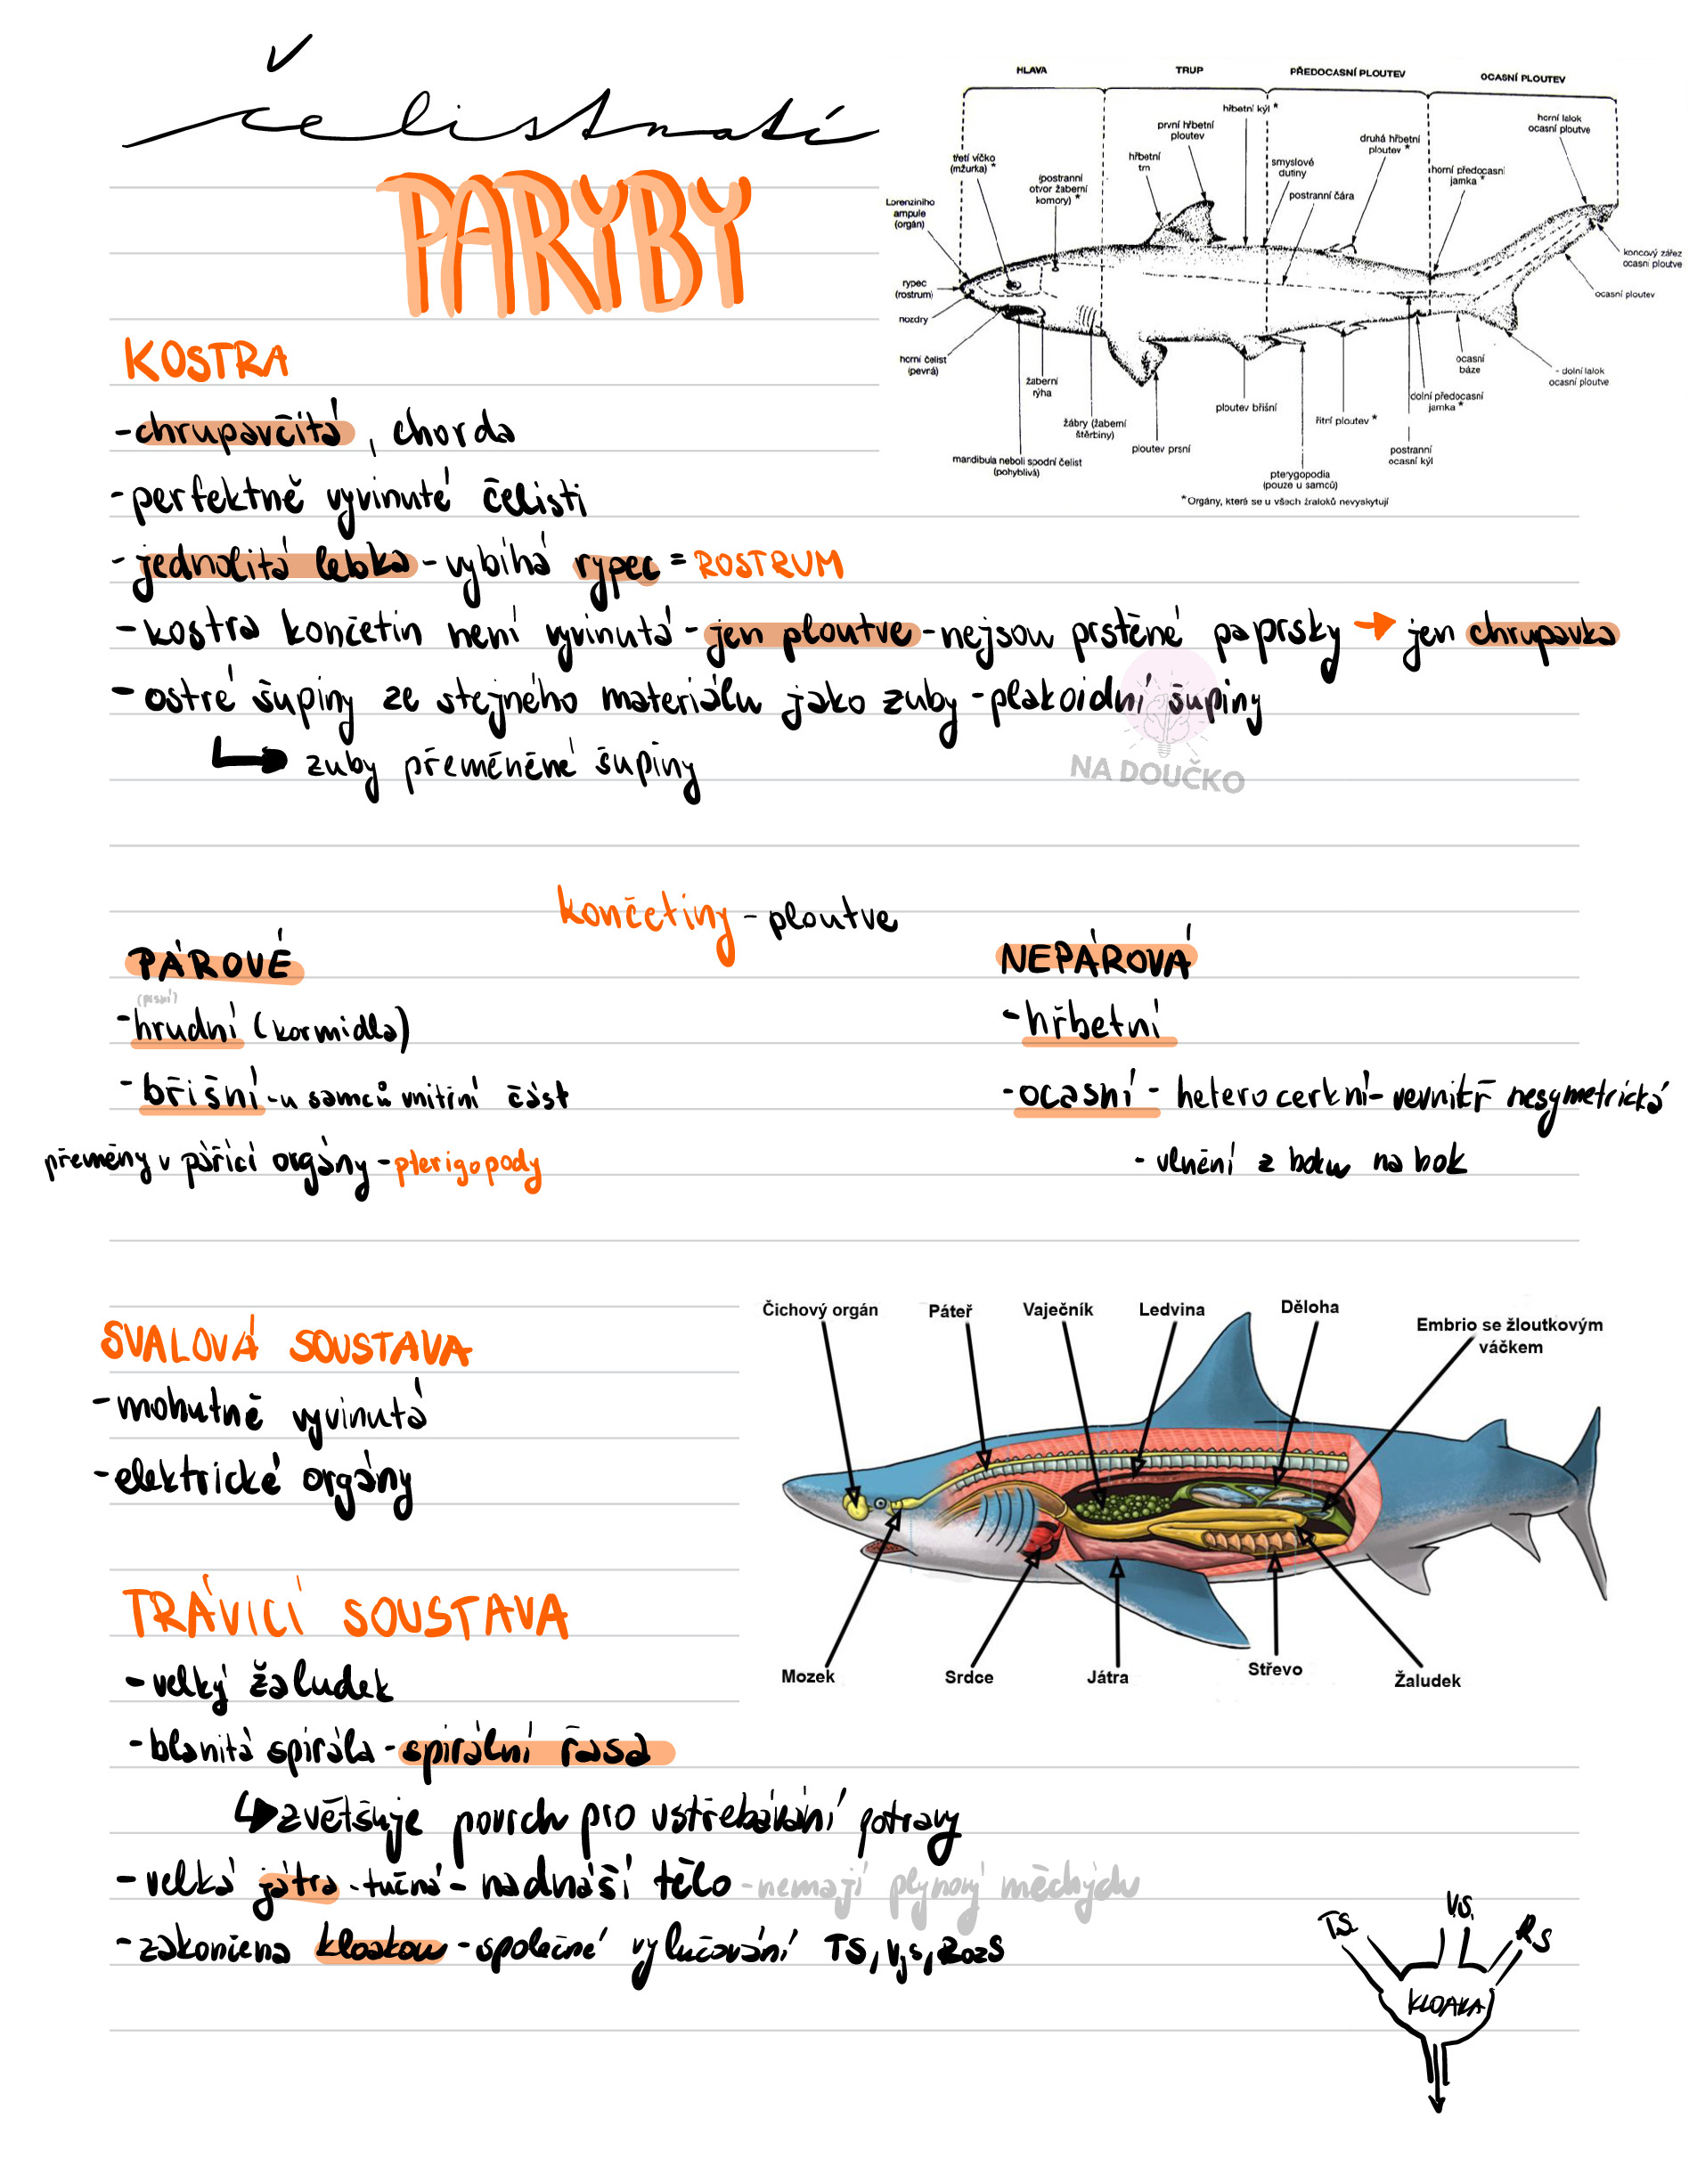 čelistnatí
PARYBY
HLAVA
TRUP
PŘEDOCASNÍ PLOUTEV
OCASNÍ PLOUTEV
hřbetní kýl *
první hřbetní
ploutev
hřbetní
trn
třetí víčko
(mžurka) *
(postranní
otvor žaberní
komory) *
smyslové
dutiny
postranní čára
druhá hřbetní
ploutev *
horní předocasní
jamka *
horní lalok
ocasní ploutve
Lorenziniho
ampule
(orgán)
rypec
(rostrum)
nozdry
horní čelist
(pevrá)
žaberní
rýha
žábry (žaberní
štěrbiny)
mandibula neboli spodní čelist
(pohyblivá)
ploutev prsní
ploutev břišní
pterygopodia
(pouze u samců)
řitní ploutev *
postranní
ocasní kýl
dolní předocasní
jamka *
ocasní
báze
- dolní lalok
ocasní ploutve
ocasní ploutev
koncový zářez
ocasní ploutve
*Orgány, která se u všech žraloků nevyskytují
KOSTRA
- chrupavčitá, chorda
- perfektně vyvinuté čelisti
- jednolitá lebka - vybíhá rypec = ROSTRUM
- kostra končetin není vyvinutá - jen ploutve - nejsou prstěné paprsky → jen chrupavka
- ostré šupiny ze stejného materiálu jako zuby - plakoidní šupiny
↳ zuby přeměněné šupiny
NA DOUČKO
končetiny - ploutve
PÁROVÉ
(prsní)
- hrudní (kormidla)
- břišní - u samců vnitřní část
přeměny v pářící orgány - pterigopody
NEPÁROVÁ
- hřbetní
- ocasní - heterocerkní - vevnitř nesymetrická
- vlnění z boku na bok
SVALOVÁ SOUSTAVA
- mohutně vyvinutá
- elektrické orgány
Čichový orgán
Páteř
Vaječník
Ledvina
Děloha
Embrio se žloutkovým
váčkem
Mozek
Srdce
Játra
Střevo
Žaludek
TRÁVICÍ SOUSTAVA
- velký žaludek
- blanitá spirála - spirální řasa
↳ zvětšuje povrch pro vstřebávání potravy
- velká játra - tučná - nadnáší tělo - nemají plynový měchýdu
- zakončena kloakou - společné vylučování TS, VyS, RozS
T.S.
V.S.
R.S
KLOAKA